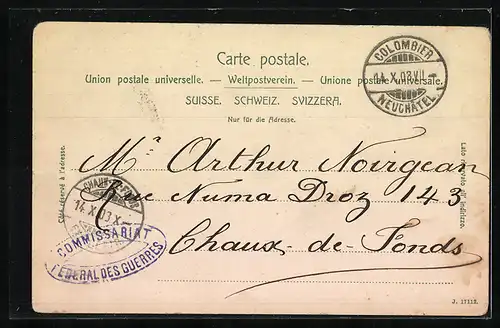 Carte postale.
Union postale universelle. — Weltpostverein. — Unione postale universale.
SUISSE. SCHWEIZ. SVIZZERA.
Nur für die Adresse.
COLOMBIER
14.X.03.VII
NEUCHÂTEL
Côté réservé à l'adresse.
Lato riservato all' indirizzo.
Mr. Arthur Noirgean
Rue Numa Droz 143
Chaux-de-Fonds
14.X.03.X
COMMISSARIAT
FEDERAL DES GUERRES
J. 17112.